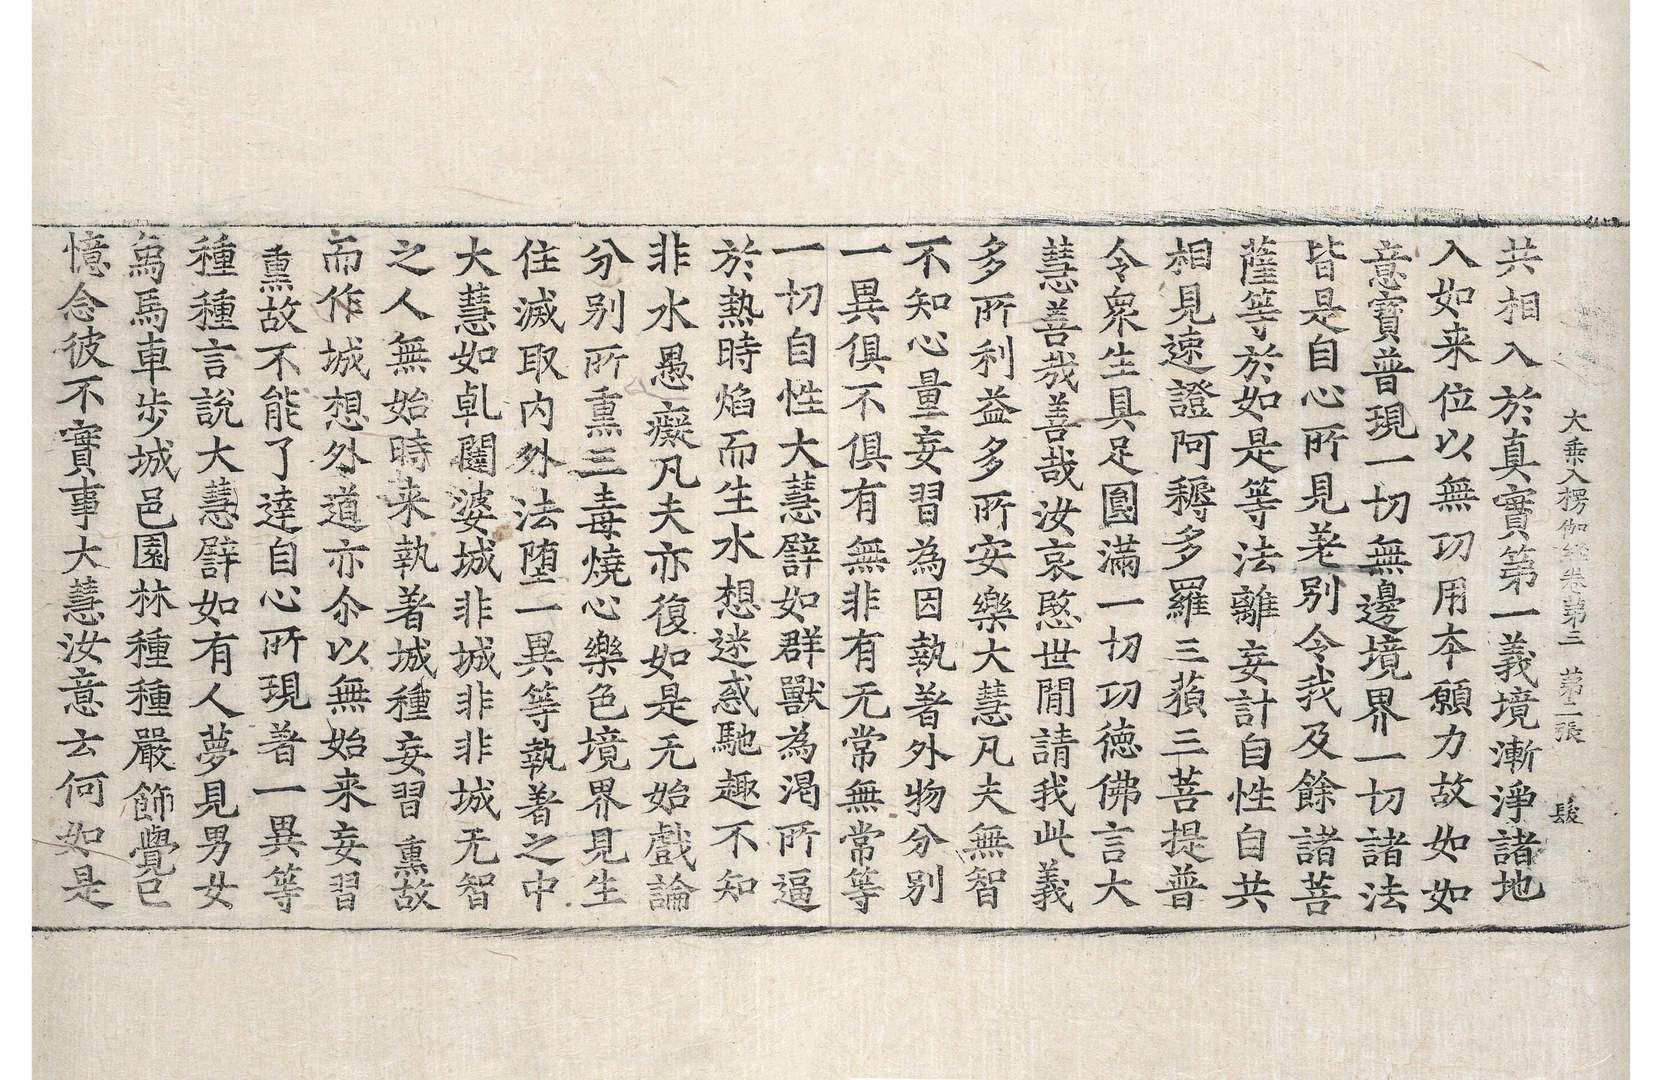 大乗入楞伽経卷第三　第二張　髮
共相入於真實第一義境漸淨諸地
入如来位以無功用本願力故如如
意寶普現一切無邊境界一切諸法
皆是自心所見差別令我及餘諸菩
薩等於如是等法離妄計自性自共
相見速證阿耨多羅三藐三菩提普
令衆生具足圓滿一切功徳佛言大
慧善哉善哉汝哀愍世間請我此義
多所利益多所安樂大慧凡夫無智
不知心量妄習為因執著外物分別
一異俱不俱有無非有无常無常等
一切自性大慧譬如群獸為渴所逼
於熱時焰而生水想迷惑馳趣不知
非水愚癡凡夫亦復如是无始戲論
分別所熏三毒燒心樂色境界見生
住滅取內外法堕一異等執著之中
大慧如乹闥婆城非城非非城无智
之人無始時来執著城種妄習熏故
而作城想外道亦尒以無始来妄習
熏故不能了達自心所現著一異等
種種言說大慧譬如有人夢見男女
烏馬車步城邑園林種種嚴飾覺已
憶念彼不實事大慧汝意云何如是